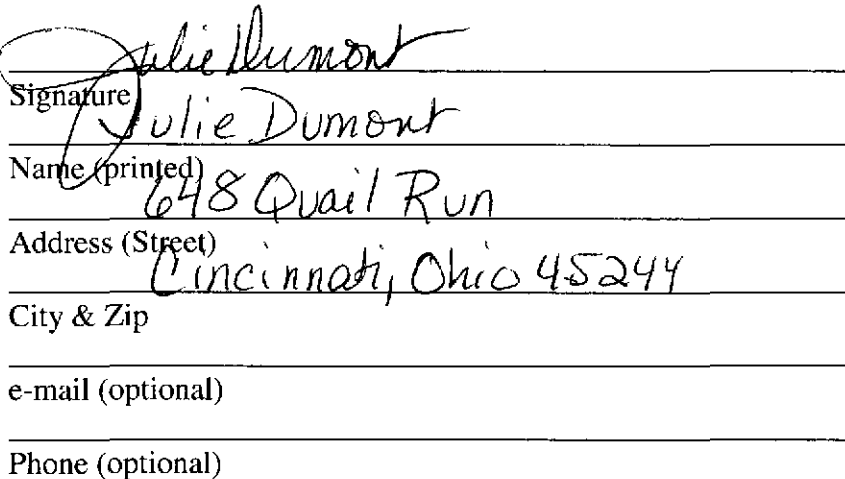 Julie Dumont
Signature
Julie Dumont
Name (printed)
648 Quail Run
Address (Street)
Cincinnati, Ohio 45244
City & Zip
e-mail (optional)
Phone (optional)